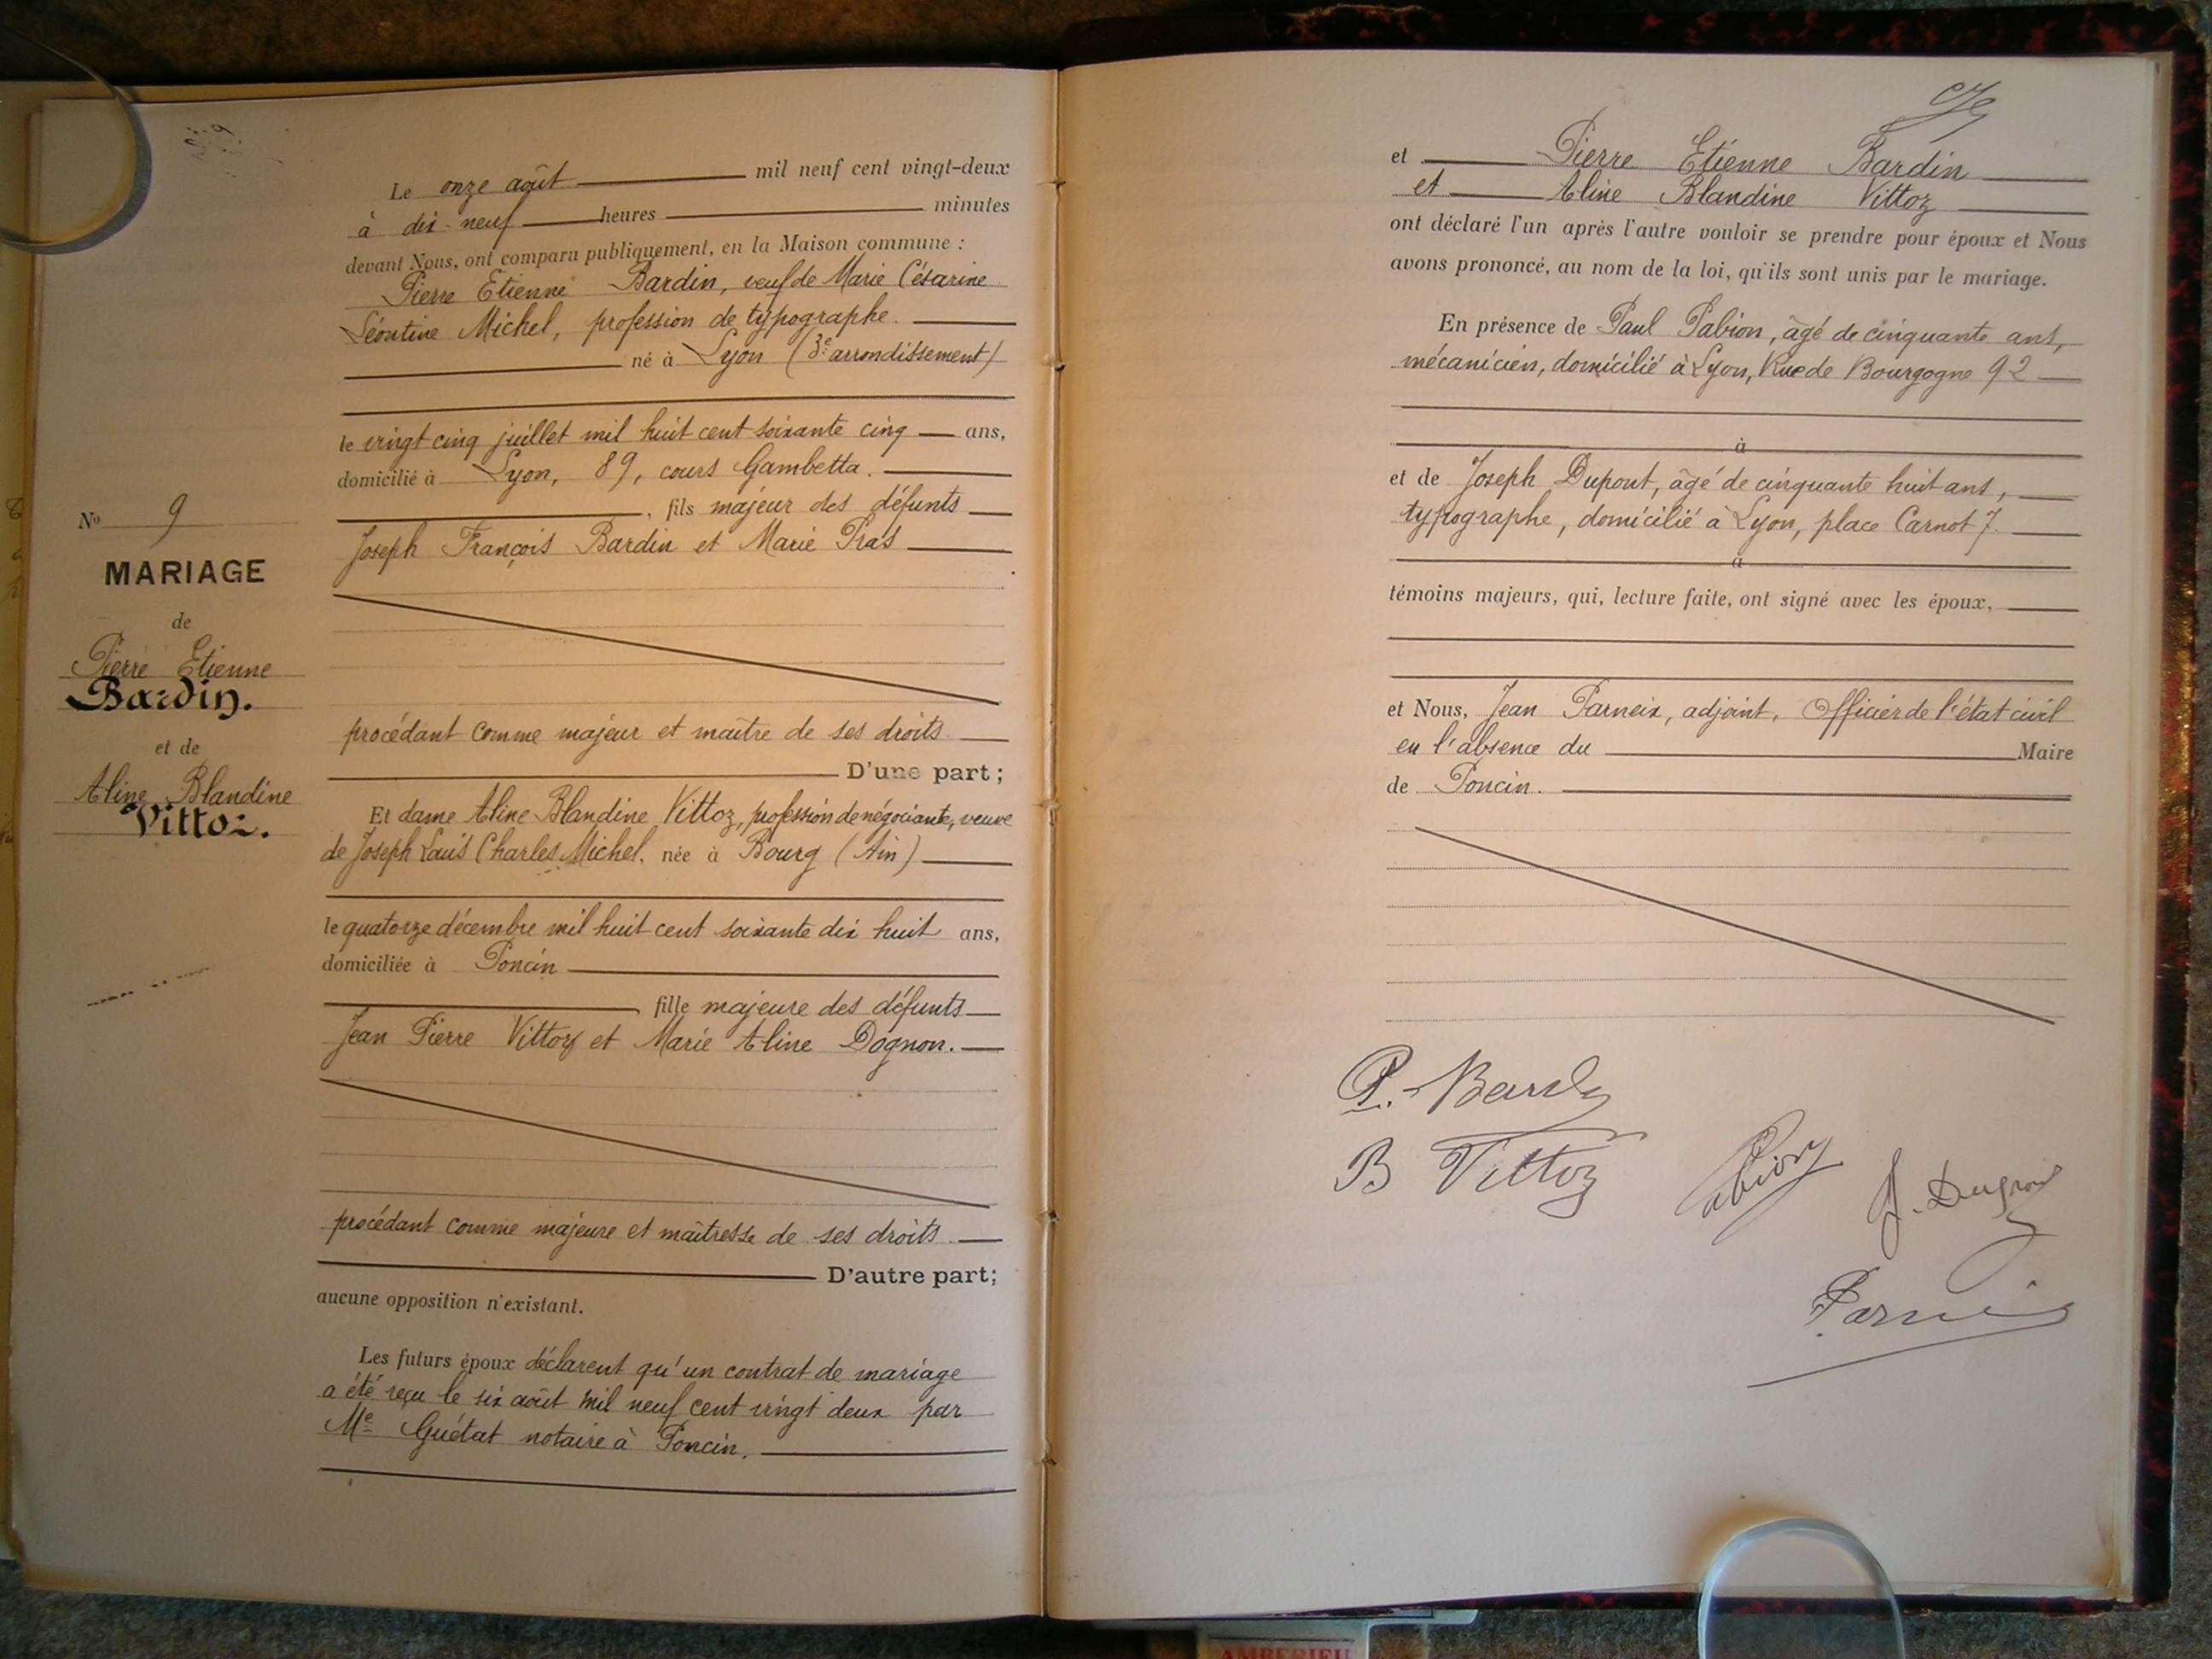 Le onze août mil neuf cent vingt-deux
à dix-neuf heures minutes
devant Nous, ont comparu publiquement, en la Maison commune :
Pierre Etienne Bardin, veuf de Marie Césarine
Léontine Michel, profession de typographe.
né à Lyon (3e arrondissement)
le vingt cinq juillet mil huit cent soixante cinq ans,
domicilié à Lyon, 89, cours Gambetta.
, fils majeur des défunts
Joseph François Bardin et Marie Pras
No 9
MARIAGE
de
Pierre Etienne
Bardin.
et de
Aline Blandine
Vittoz.
procédant comme majeur et maître de ses droits
D'une part ;
Et dame Aline Blandine Vittoz, profession de négociante, veuve
de Joseph Louis Charles Michel, née à Bourg (Ain)
le quatorze décembre mil huit cent soixante dix huit ans,
domiciliée à Poncin
, fille majeure des défunts
Jean Pierre Vittoz et Marie Aline Dognon.
procédant comme majeure et maîtresse de ses droits
D'autre part ;
aucune opposition n'existant.
Les futurs époux déclarent qu'un contrat de mariage
a été reçu le six août mil neuf cent vingt deux par
Me Guétat notaire à Poncin.
et Pierre Etienne Bardin
et Aline Blandine Vittoz
ont déclaré l'un après l'autre vouloir se prendre pour époux et Nous
avons prononcé, au nom de la loi, qu'ils sont unis par le mariage.
En présence de Paul Pabion, âgé de cinquante ans,
mécanicien, domicilié à Lyon, Rue de Bourgogne 92
à
et de Joseph Dupont, âgé de cinquante huit ans,
typographe, domicilié à Lyon, place Carnot 7.
à
témoins majeurs, qui, lecture faite, ont signé avec les époux,
et Nous, Jean Parneix, adjoint, Officier de l'état civil
en l'absence du Maire
de Poncin.
P. Bardin
B Vittoz
Pabion
J. Dupont
Parneix
AMBERIEU